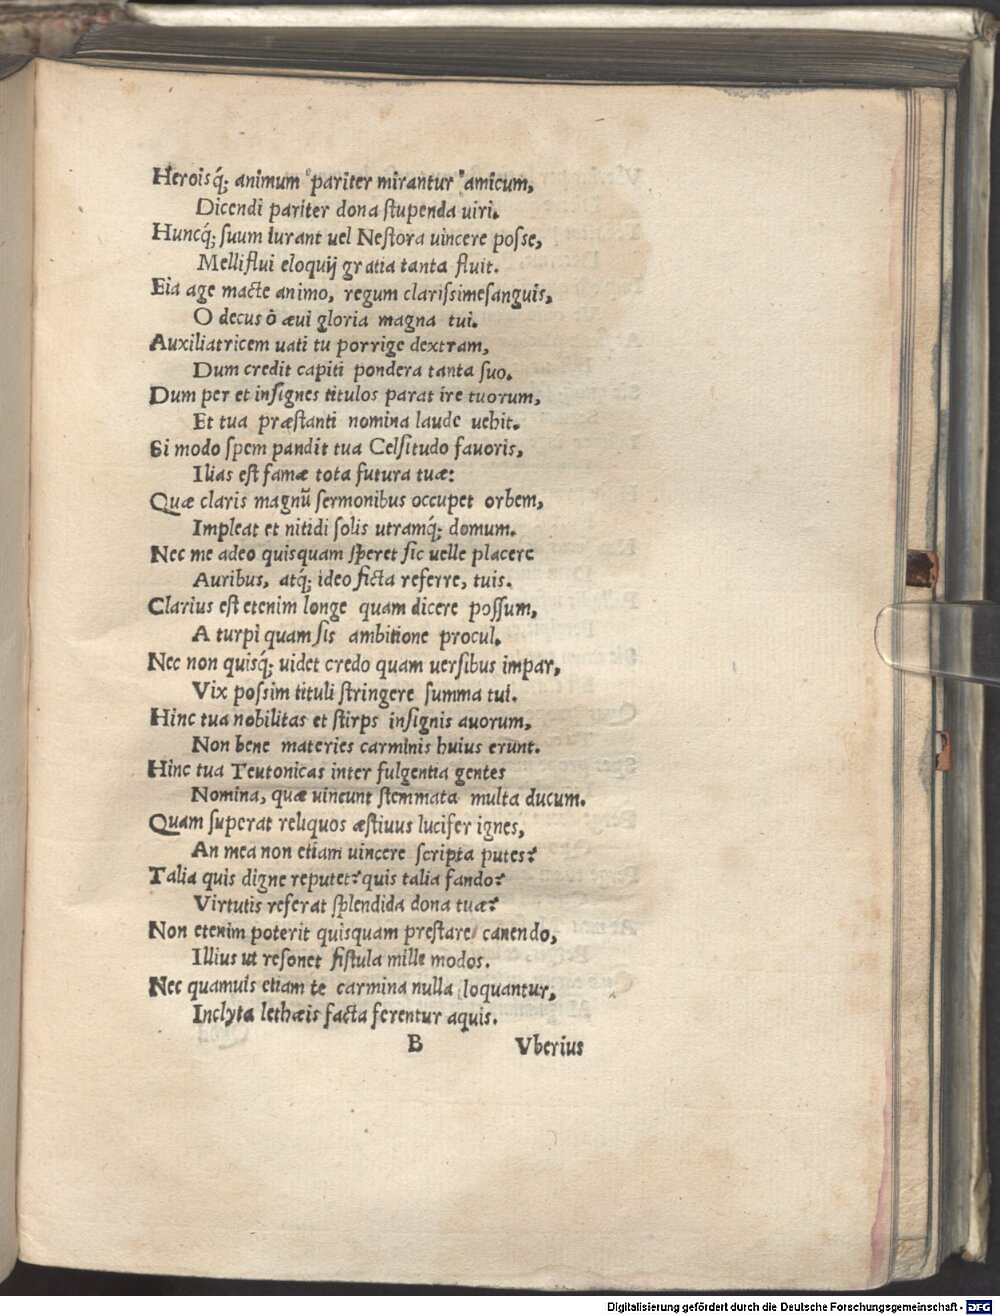 Heroisq́; animum pariter mirantur amicum,
Dicendi pariter dona stupenda uiri.
Huncq́; suum iurant uel Nestora uincere posse,
Melliflui eloquij gratia tanta fluit.
Eia age macte animo, regum clarissimesanguis,
O decus ô æui gloria magna tui.
Auxiliatricem uati tu porrige dextram,
Dum credit capiti pondera tanta suo.
Dum per et insignes titulos parat ire tuorum,
Et tua præstanti nomina laude uehit.
Si modo spem pandit tua Celsitudo favoris,
Ilias est famæ tota futura tuæ:
Quæ claris magnū sermonibus occupet orbem,
Impleat et nitidi solis utramq́; domum.
Nec me adeo quisquam speret sic uelle placere
Auribus, atq́; ideo ficta referre, tuis.
Clarius est etenim longe quam dicere possum,
A turpi quam sis ambitione procul.
Nec non quisq́; uidet credo quam uersibus impar,
Vix possim tituli stringere summa tui.
Hinc tua nobilitas et stirps insignis auorum,
Non bene materies carminis huius erunt.
Hinc tua Teutonicas inter fulgentia gentes
Nomina, quæ uincunt stemmata multa ducum.
Quam superat reliquos æstiuus lucifer ignes,
An mea non etiam uincere scripta putes?
Talia quis digne reputet? quis talia fando?
Virtutis referat splendida dona tuæ?
Non etenim poterit quisquam prestare canendo,
Illius ut resonet fistula mille modos.
Nec quamuis etiam te carmina nulla loquantur,
Inclyta lethæis facta ferentur aquis.
B Vberius
Digitalisierung gefördert durch die Deutsche Forschungsgemeinschaft - DFG